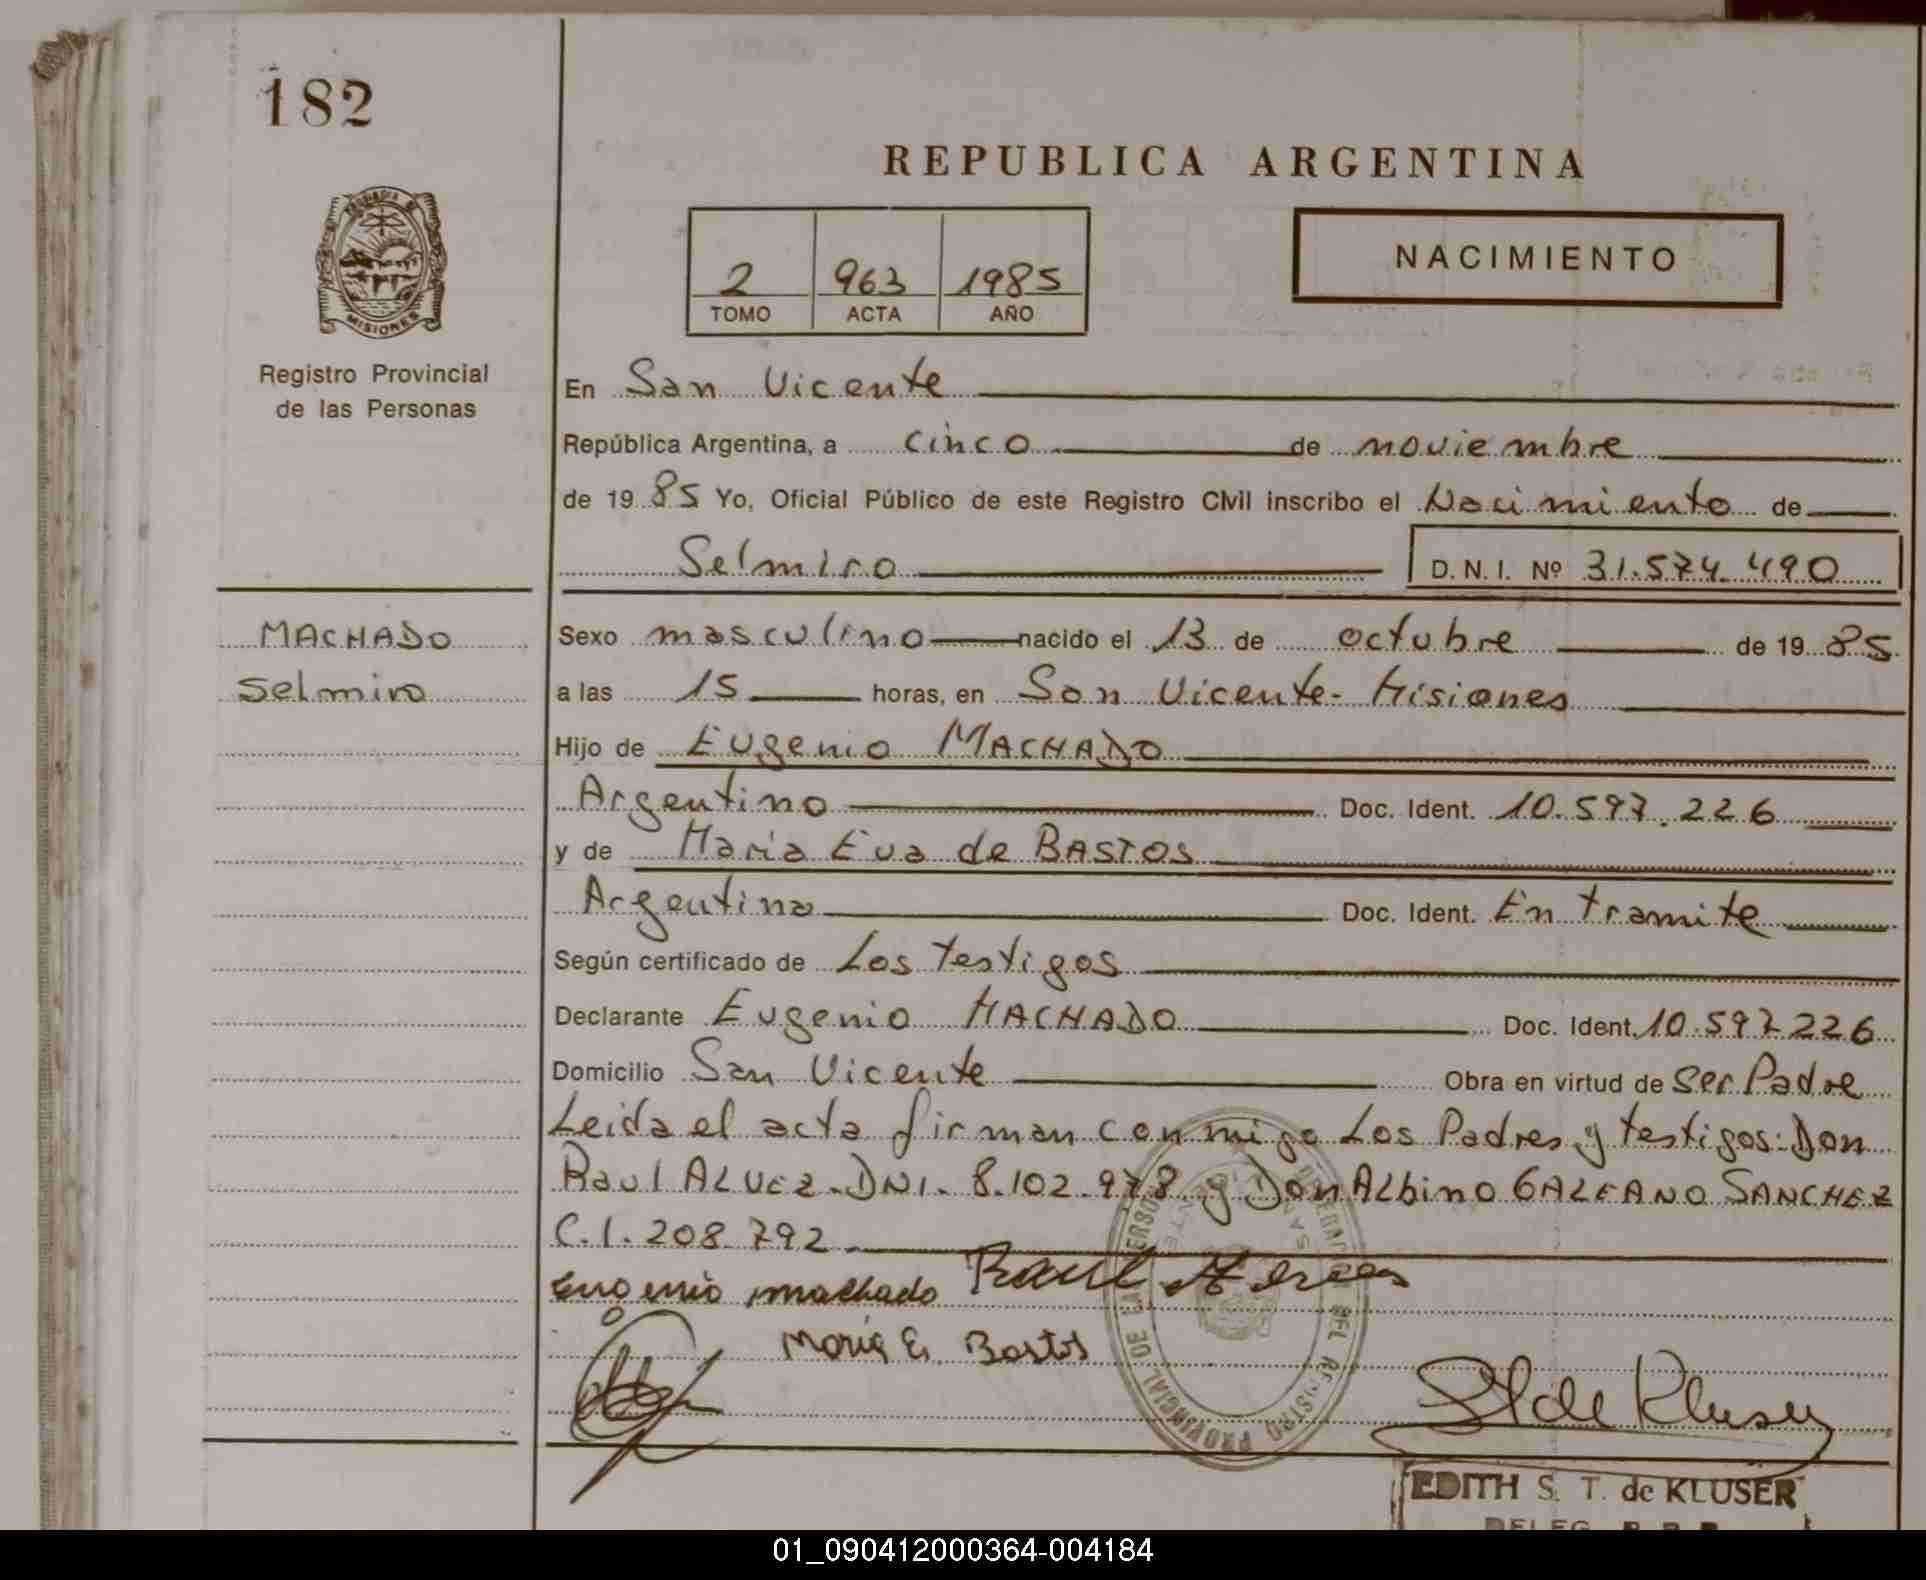 182
REPUBLICA ARGENTINA
NACIMIENTO
2 963 1985
TOMO ACTA AÑO
MISIONES
Registro Provincial
de las Personas
En San Vicente
República Argentina, a cinco de noviembre
de 19 85 Yo, Oficial Público de este Registro Civil inscribo el Nacimiento de
Selmiro D.N.I. Nº 31.574.490
MACHADO
Selmiro
Sexo masculino nacido el 13 de octubre de 19 85
a las 15 horas, en San Vicente - Misiones
Hijo de Eugenio MACHADO
Argentino Doc. Ident. 10.597.226
y de Maria Eva de BASTOS
Argentina Doc. Ident. En tramite
Según certificado de Los testigos
Declarante Eugenio MACHADO Doc. Ident. 10.597.226
Domicilio San Vicente Obra en virtud de Ser Padre
Leida el acta firman conmigo Los Padres y testigos: Don
Raul ALVEZ - DNI. 8.102.978 y Don Albino GALEANO SANCHEZ
C.I. 208.792
Eugenio machado Raul
Maria E. Bastos
de Kluser
EDITH S. T. de KLUSER
01_090412000364-004184